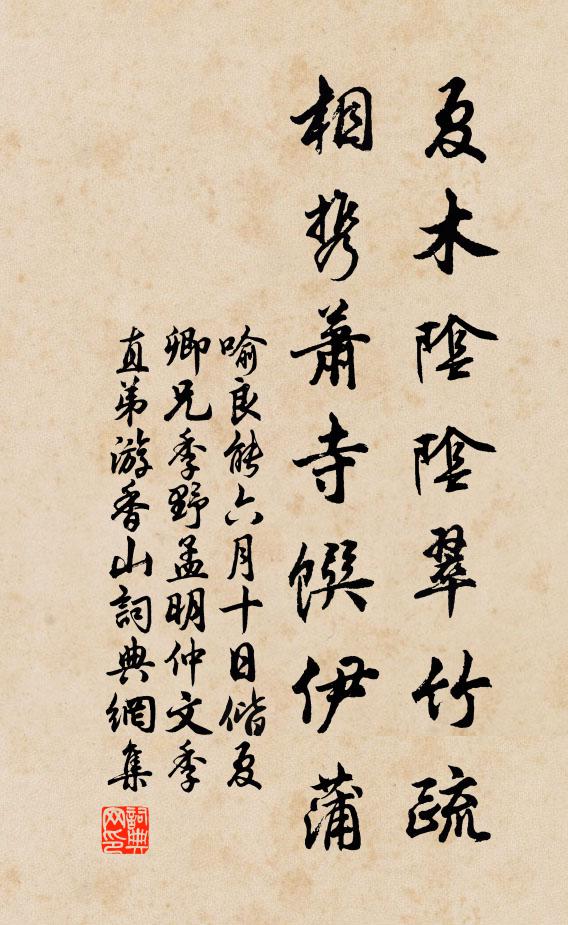 夏木陰陰翠竹疏
相携蕭寺饌伊蒲
喻良能六月十日偕夏
卿兄季野孟明仲文季
直弟游香山詞典網集
詞典网印